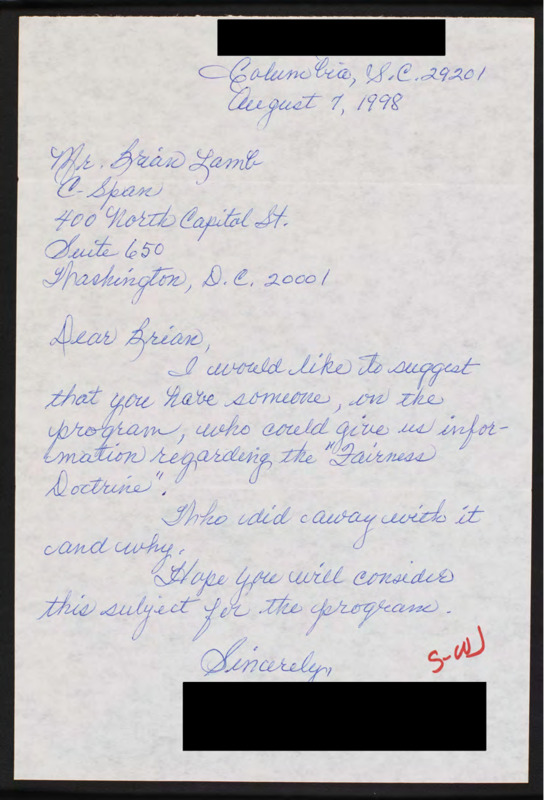 Columbia, S.C. 29201
August 7, 1998
Mr. Brian Lamb
C-Span
400 North Capitol St.
Suite 650
Washington, D.C. 20001
Dear Brian,
I would like to suggest
that you have someone, on the
program, who could give us infor-
mation regarding the "Fairness
Doctrine".
Who did away with it
and why.
Hope you will consider
this subject for the program.
Sincerely,
S-W